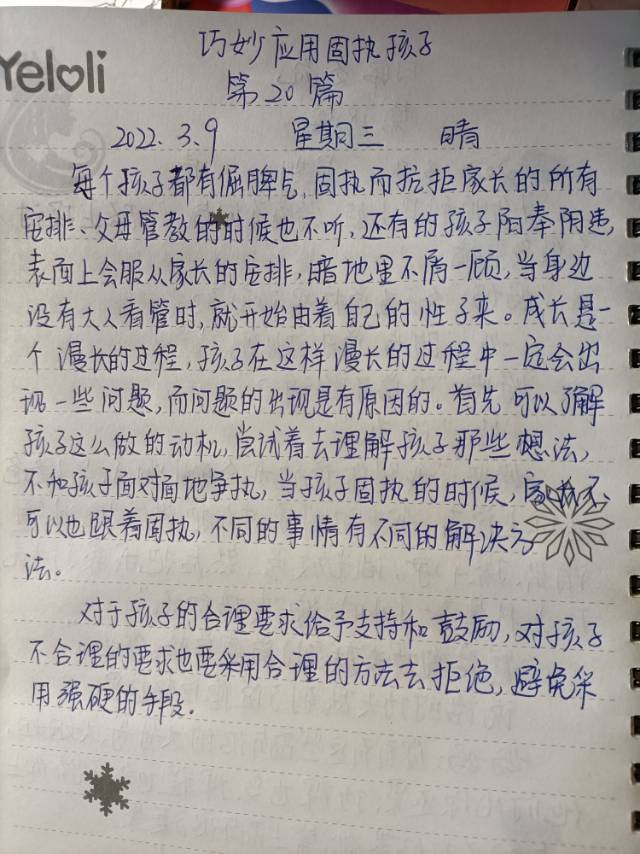 Yeloli
巧妙应用固执孩子
第20篇
2022.3.9 星期三 晴
每个孩子都有倔脾气,固执而抗拒家长的所有
安排、父母管教的时候也不听,还有的孩子阳奉阴违,
表面上会服从家长的安排,暗地里不屑一顾,当身边
没有大人看管时,就开始由着自己的性子来。成长是一
个漫长的过程,孩子在这样漫长的过程中一定会出
现一些问题,而问题的出现是有原因的。首先可以了解
孩子这么做的动机,尝试着去理解孩子那些想法,
不和孩子面对面地争执,当孩子固执的时候,家长不
可以也跟着固执,不同的事情有不同的解决方
法。
对于孩子的合理要求给予支持和鼓励,对孩子
不合理的要求也要采用合理的方法去拒绝,避免采
用强硬的手段.